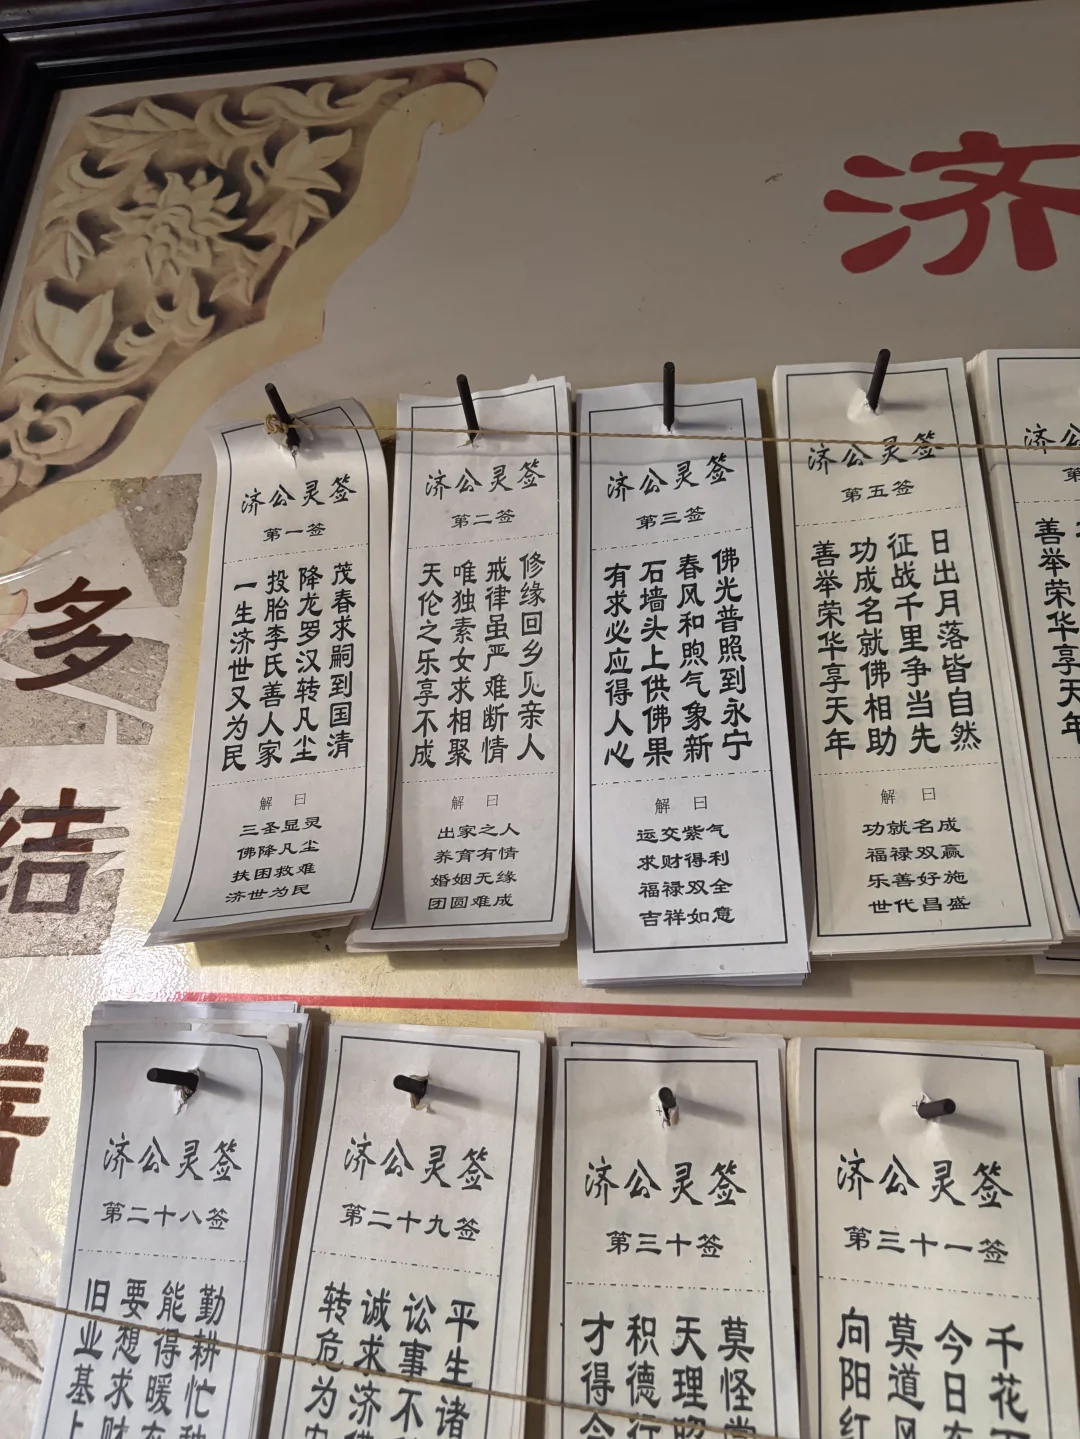 济
多
结
善
济公灵签
第一签
茂春求嗣到国清
降龙罗汉转凡尘
投胎李氏善人家
一生济世又为民
解曰
三圣显灵
佛降凡尘
扶困救难
济世为民
济公灵签
第二签
修缘回乡见亲人
戒律虽严难断情
唯独素女求相聚
天伦之乐享不成
解曰
出家之人
养育有情
婚姻无缘
团圆难成
济公灵签
第三签
佛光普照到永宁
春风和煦气象新
石墙头上供佛果
有求必应得人心
解曰
运交紫气
求财得利
福禄双全
吉祥如意
济公灵签
第五签
日出月落皆自然
征战千里争当先
功成名就佛相助
善举荣华享天年
解曰
功就名成
福禄双赢
乐善好施
世代昌盛
济公
第
善举荣华享天年
济公灵签
第二十八签
勤耕忙种
能得暖衣
要想求财
旧业基上
济公灵签
第二十九签
平生诸
讼事不
诚求济佛
转危为安
济公灵签
第三十签
莫怪堂
天理昭
积德行
才得今
济公灵签
第三十一签
千花
今日在
莫道风
向阳红